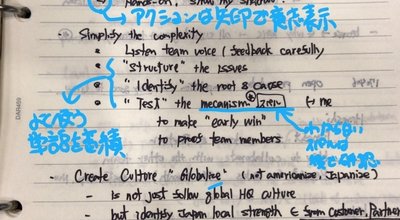 Hands-on, show my
アクションは矢印で表示
Simplify the complexity
Listen team voice / feedback carefully
"Structure" the issues
"Identify" the root & cause
"Test" the mecanism
to make "early win"
to proof team members
よく使う
単語を蓄積
Create Culture "Globalize" (not americanize, Japanize)
is not just follow global HQ culture
but identify Japan local strength ← from Customer, Partner